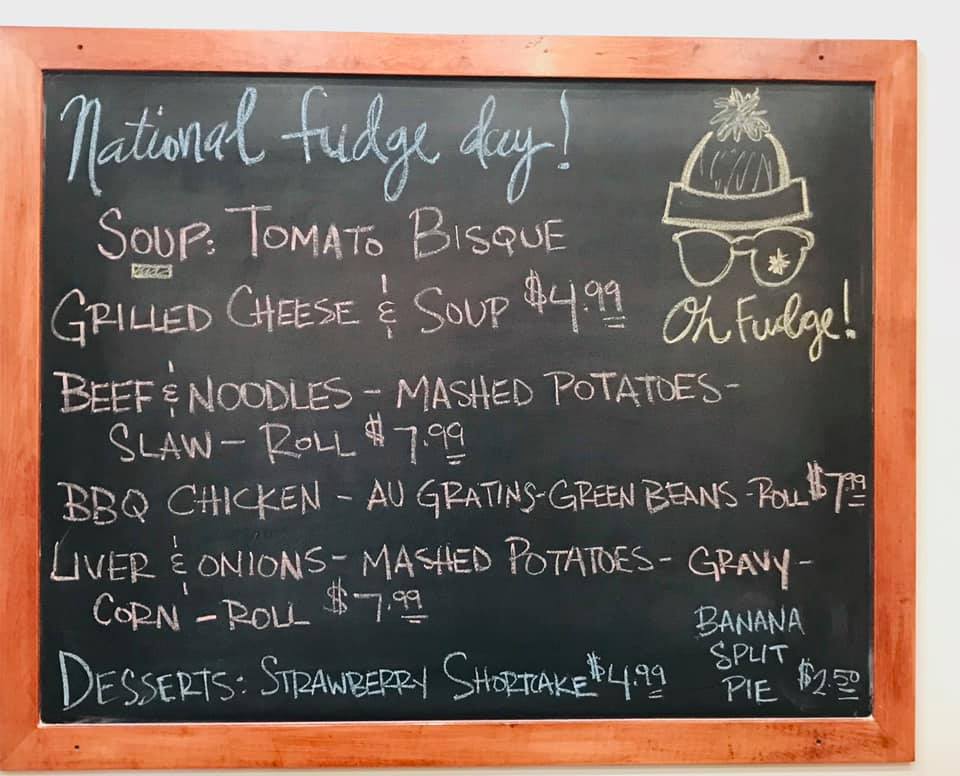 National fudge day!
SOUP: TOMATO BISQUE
GRILLED CHEESE & SOUP $4.99
Oh Fudge!
BEEF & NOODLES - MASHED POTATOES -
SLAW - ROLL $7.99
BBQ CHICKEN - AU GRATINS - GREEN BEANS - ROLL $7.99
LIVER & ONIONS - MASHED POTATOES - GRAVY -
CORN - ROLL $7.99
DESSERTS: STRAWBERRY SHORTCAKE $4.99
BANANA
SPLIT
PIE $2.50